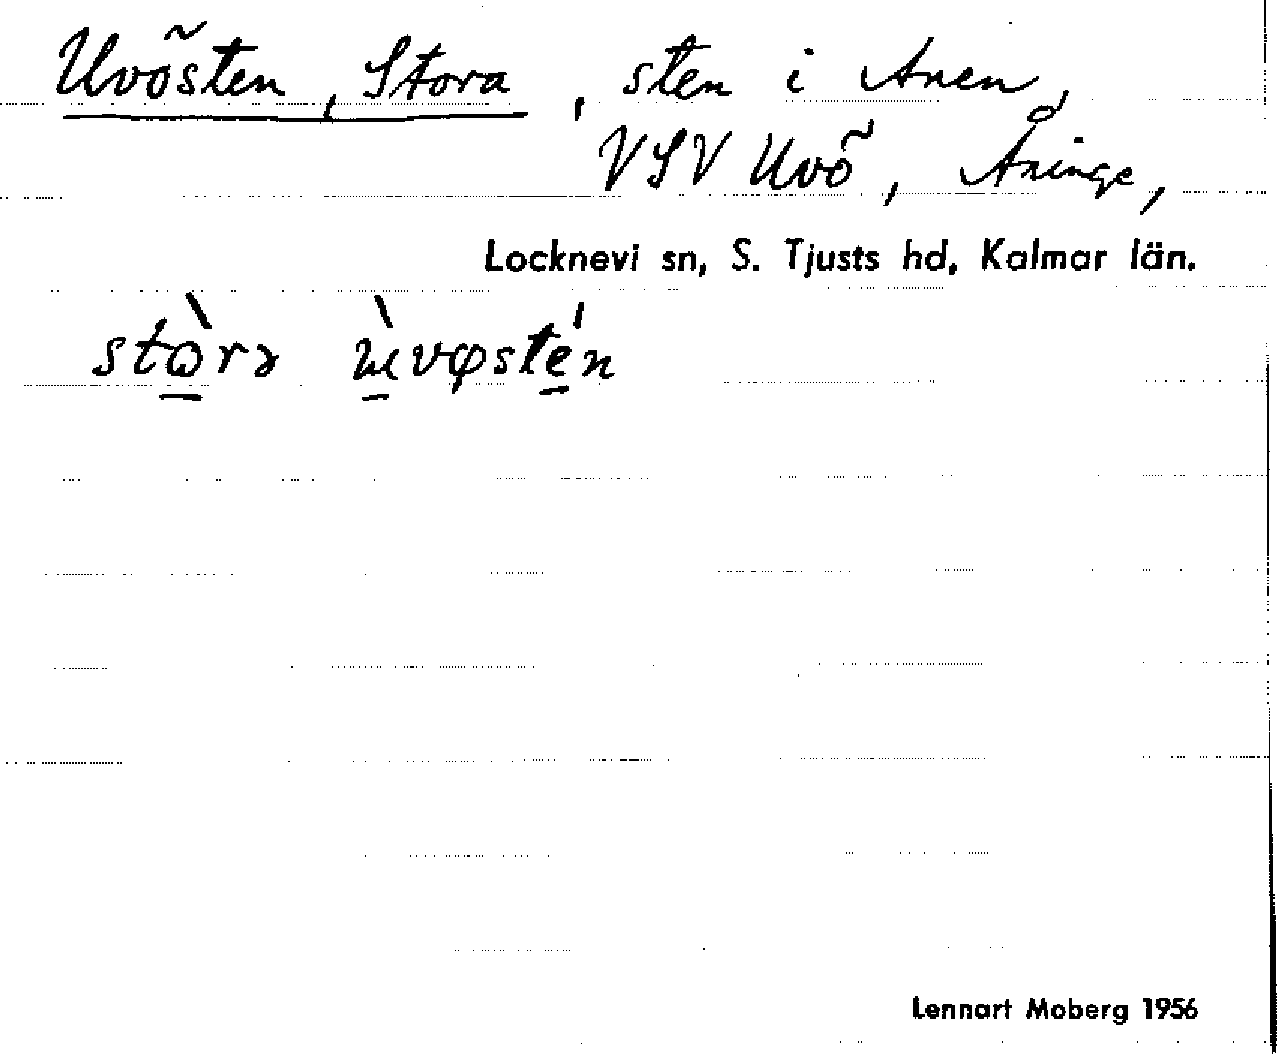 Uvösten, Stora, sten i Anen,
VSV Uvö, Åninge,
Locknevi sn, S. Tjusts hd, Kalmar län.
stɷ̀rɘ ùvφstén
Lennart Moberg 1956